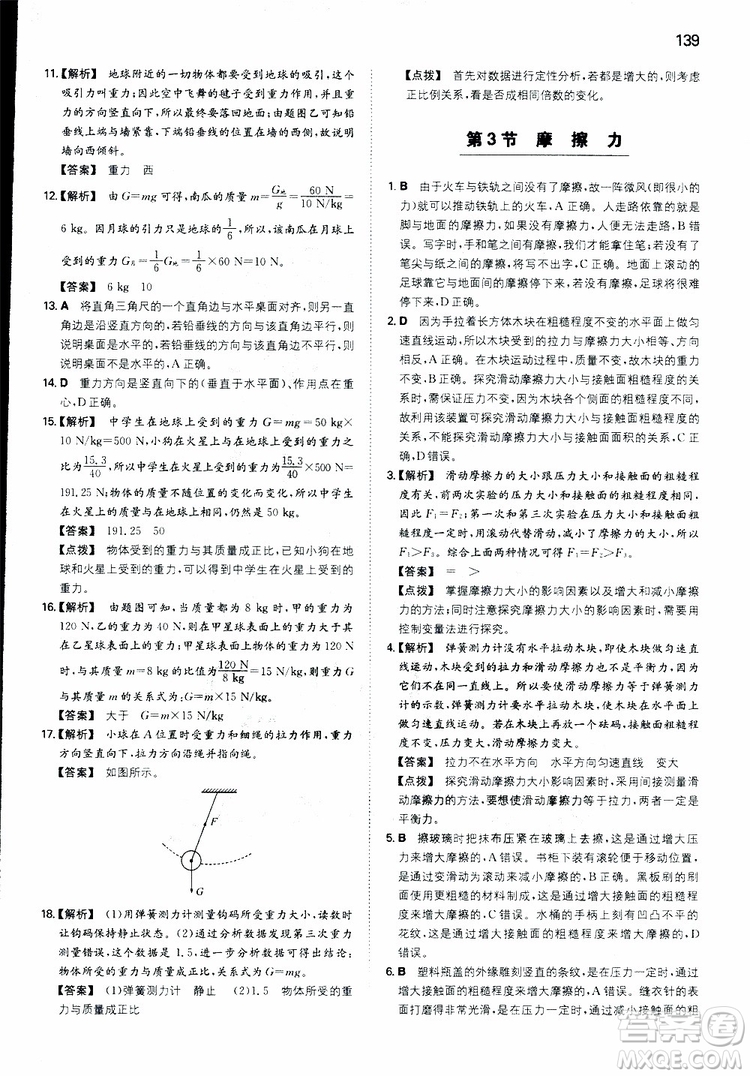 139
11.【解析】 地球附近的一切物体都要受到地球的吸引,这个
吸引力叫重力;因此空中飞舞的毽子同样受到重力,因为
重力的方向竖直向下,所以毽子最终要落回地面;由图乙可知,
铅垂线上端与墙紧靠,下端铅垂线与墙的西侧分开,故说明
墙向西倾斜。
【答案】 重力 西
12.【解析】 由 G=mg 可得,南瓜的质量 m=G地/g=60 N/10 N/kg=
6 kg。因月球的引力只是地球的1/6,故该南瓜在月球上
受到的重力 G月=1/6G地=1/6×60 N=10 N。
【答案】 6 kg 10
13. A 将直角三角尺的一个直角边与水平桌面对齐,则另一直
角边是沿竖直方向的;若铅垂线的方向与该直角边平行,则
说明桌面是水平的,若铅垂线的方向与该直角边不平行,则
说明桌面不是水平的,故 A 正确。
14. D 重力方向是竖直向下的(垂直于水平面),指向地球的球
心,D 正确。
15.【解析】 中学生在地球上受到的重力 G=mg=50 kg×
10 N/kg=500 N,小狗在火星上受到的重力与在地球之
比是15.3/40,所以中学生在火星上受到的重力为 500 N×15.3/40=
191.25 N;物体的质量不随位置的变化而变化,所以中学
生在火星上的质量仍为 50 kg。
【答案】 191.25 50
【点拨】 物体受到的重力与其质量成正比,知道小狗在地
球和火星上受到的重力,可得到中学生在火星上受到的重
力。
16.【解析】 由题图可知,当质量为 8 kg 时,甲的重力为
120 N,乙的重力为 40 N,则在甲星球表面上的重力大于其
在乙星球表面上的重力;物体在甲星球表面上的重力为120 N
时,其质量为 8 kg,重力与质量的比值为120 N/8 kg=15 N/kg,故
G 与 m 的关系式为 G=m×15 N/kg。
【答案】 大于 G=m×15 N/kg
17.【解析】 小球在 A 位置时受重力和细绳的拉力作用,重力
方向竖直向下,拉力方向沿绳并指向绳收缩的方向。
【答案】 如图所示。
F
G
18.【解析】 (1)用弹簧测力计测量钩码所受重力大小,读数时
让钩码保持静止状态。(2)通过分析数据发现第三次重力
测量错误,这个数据是 1.5,进一步分析数据可得出结论:物
体所受的重力与质量成正比,关系式为 G=mg。
【答案】 (1)弹簧测力计 静止 (2)1.5 物体所受的重
力与质量成正比
【点拨】 首先对数据进行定性分析,若都是增大的,可考虑
正比例关系,看是否成相同倍数的变化。
第3节 摩擦力
1. B 由于火车与铁轨之间没有了摩擦,故一阵微风(即很小的
力)就可以推动铁轨上的火车,A 正确。人走路依靠的就是
脚与地面的摩擦力,如果没有摩擦,人走路将寸步难行,B 错
误。写字时,手和笔之间没有摩擦,我们不能拿住笔;如果
笔尖与纸间没有摩擦,将写不出字,C 正确。地面上滚动的
足球靠它与地面的摩擦停下来,若没有摩擦,足球将很难
停下来,D 正确。
2. D 因为手拉着长方体木块在粗糙程度不变的水平面上做匀
速直线运动,所以木块受到的拉力与滑动摩擦力是一对平
衡力,A 正确。在木块运动过程中,质量不变,故木块的重力
不变,B 正确。探究滑动摩擦力大小与接触面粗糙程度的关
系时,要控制压力不变,因木块各个侧面的粗糙程度不同,
故利用该装置可探究滑动摩擦力大小与接触面粗糙程度的
关系,不能探究滑动摩擦力与接触面面积的关系,C 正确,D
错误。
3.【解析】 滑动摩擦力的大小跟压力大小、接触面的粗糙程
度有关。第一次和第三次实验压力和接触面的粗糙程度
相同,因此 F1=F3。第一次实验压力比第二次大,接触面的
粗糙程度一定时,滑动摩擦力的大小与压力有关,所以
F1>F2。综合上面两次可得 F1=F3>F2。
【答案】 = >
【点拨】 掌握摩擦力大小的影响因素,压力越大,滑动摩擦
力越大;同时接触面的粗糙程度也会影响摩擦力的大小,要用
控制变量法进行探究。
4.【解析】 弹簧测力计没有水平拉动木块,木块做匀速直线
运动,木块受到的拉力和滑动摩擦力是一对平衡力,木块受
到的拉力等于滑动摩擦力。弹簧测力计要水平拉动木块,使木块
做匀速直线运动。在木块上再放一个砝码,木块对水平桌面
的压力变大,滑动摩擦力变大。
【答案】 拉力不在水平方向 水平方向匀速直线 变大
【点拨】 探究滑动摩擦力大小影响因素时,采用间接测量滑
动摩擦力的方法,要想使滑动摩擦力等于拉力,二力应是
平衡力。
5. B 擦玻璃时把抹布压紧在玻璃上去擦,这是通过增大压
力来增大摩擦的,A 错误。书柜下装有滚轮便于挪动,这是
通过变滑动为滚动来减小摩擦的,B 正确。黑板刷的刷面
使用更粗糙的材料制成,这是通过增大接触面的粗糙程
度来增大摩擦的,C 错误。水桶的手柄上刻有凹凸不平的
花纹,这是通过增大接触面的粗糙程度来增大摩擦的,D
错误。
6. B 塑料瓶盖的外缘雕刻竖直的条纹,是为了通过增大接触
面的粗糙程度来增大摩擦力,A 不符合题意。缝衣针的表
面打磨得非常光滑,是为了通过减小接触面的粗
答案圈
MXQE.COM